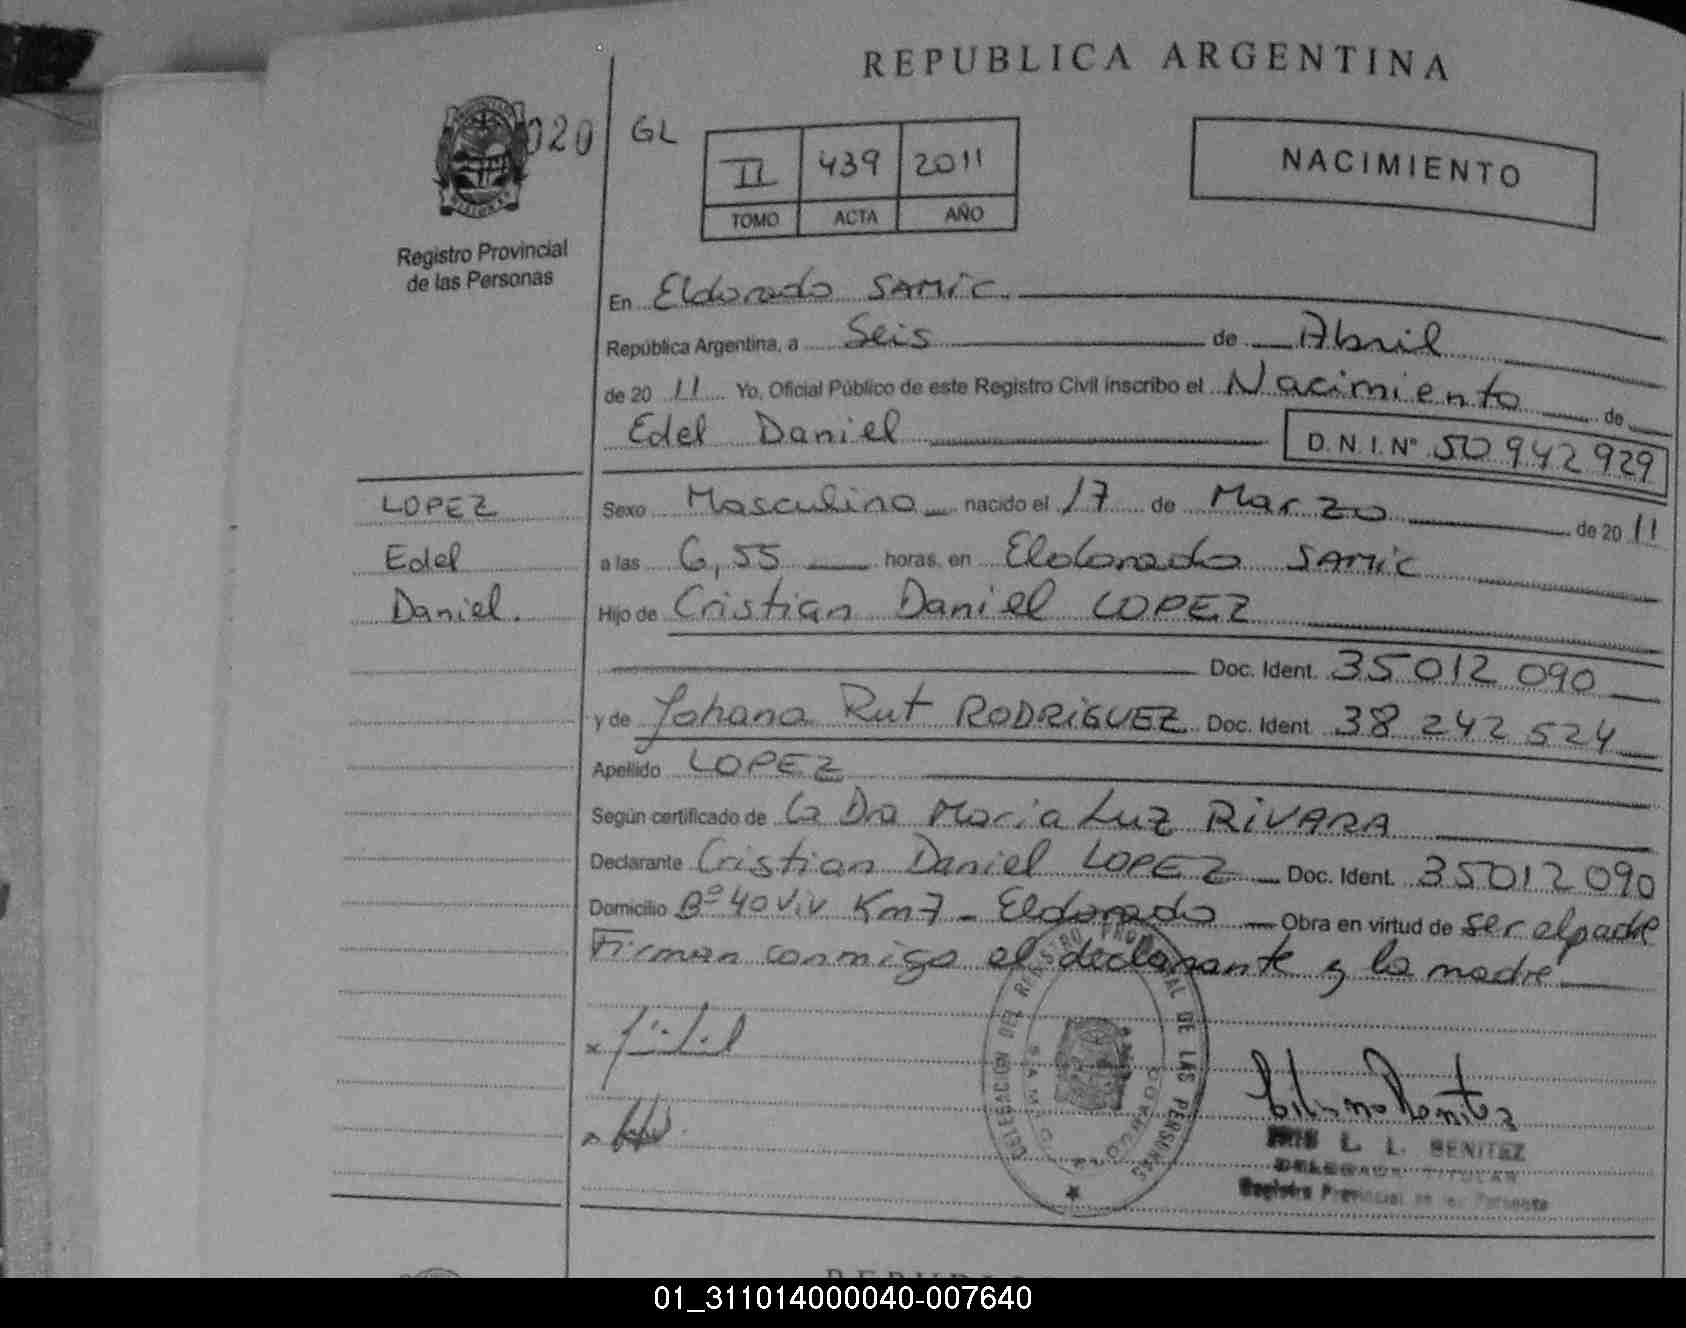 REPUBLICA ARGENTINA
020
GL
II 439 2011
TOMO ACTA AÑO
NACIMIENTO
Registro Provincial
de las Personas
En Eldorado SAMIC
República Argentina, a Seis de Abril
de 20 11 Yo, Oficial Público de este Registro Civil inscribo el Nacimiento de
Edel Daniel D.N.I.Nº 50 942 929
LOPEZ
Edel
Daniel.
Sexo Masculino nacido el 17 de Marzo de 20 11
a las 6,55 horas, en Eldorado SAMIC
Hijo de Cristian Daniel LOPEZ
Doc. Ident. 35 012 090
y de Johana Rut RODRIGUEZ Doc. Ident 38 242 524
Apellido LOPEZ
Según certificado de la Dra Maria Luz RIVARA
Declarante Cristian Daniel LOPEZ Doc. Ident. 35 012 090
Domicilio Bº 40 Viv Km 7 - Eldorado Obra en virtud de ser el padre
Firman conmigo el declarante y la madre
DELEGACION DEL REGISTRO PROVINCIAL DE LAS PERSONAS
L. L. BENITEZ
DELEGADA TITULAR
Registro Provincial de las Personas
01_311014000040-007640